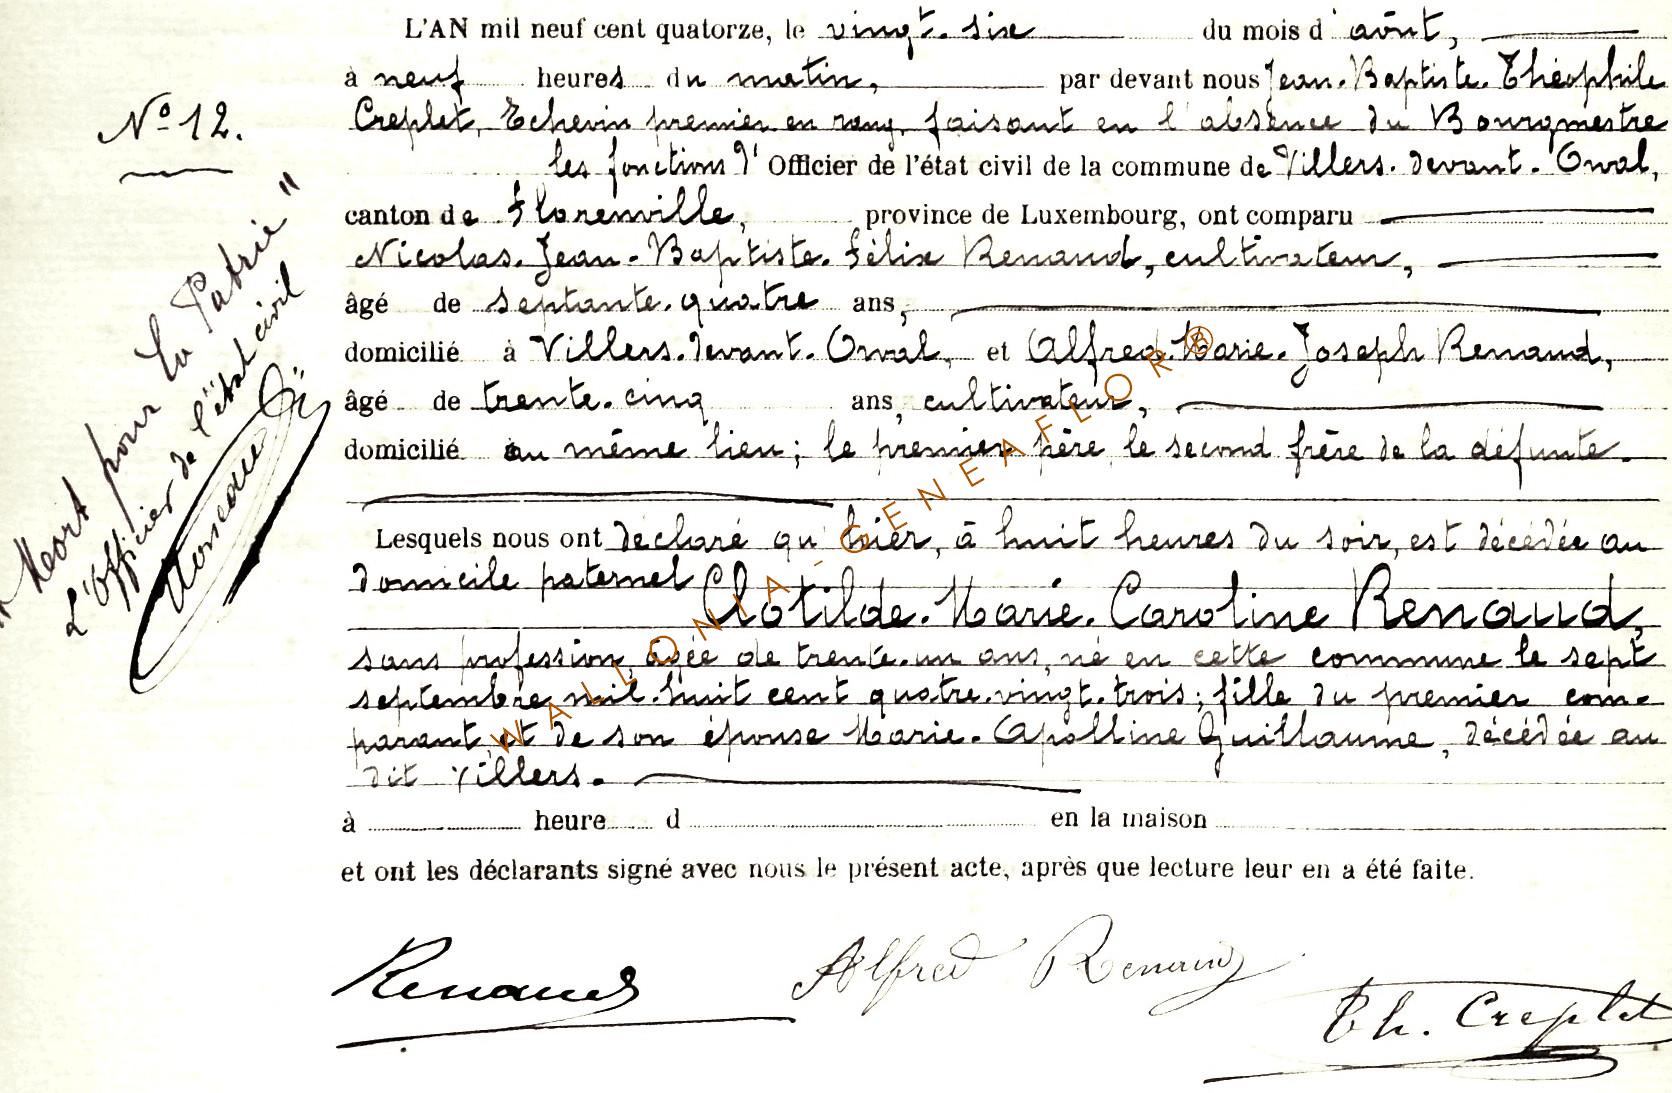 L'AN mil neuf cent quatorze, le vingt-six du mois d'août,
à neuf heures du matin, par devant nous Jean-Baptiste-Théophile
Creplet, Echevin premier en rang, faisant en l'absence du Bourgmestre
les fonctions d'Officier de l'état civil de la commune de Villers-devant-Orval,
canton de Florenville, province de Luxembourg, ont comparu
Nicolas-Jean-Baptiste-Félix Renaud, cultivateur,
âgé de septante-quatre ans,
domicilié à Villers-devant-Orval, et Alfred-Marie-Joseph Renaud,
âgé de trente-cinq ans, cultivateur,
domicilié au même lieu; le premier père, le second frère de la défunte.
Lesquels nous ont déclaré qu'hier, à huit heures du soir, est décédée au
domicile paternel Clotilde-Marie-Caroline Renaud,
sans profession, âgée de trente-un ans, né en cette commune le sept
septembre mil-huit cent quatre-vingt-trois; fille du premier com-
parant, et de son épouse Marie-Apolline Guillaume, décédée au
dit Villers.
à heure d en la maison
et ont les déclarants signé avec nous le présent acte, après que lecture leur en a été faite.
Renaud Alfred Renaud
Th. Creplet
N° 12.
"Mort pour la Patrie"
L'Officier de l'état civil
WALLONIA-GENEAFLOR®